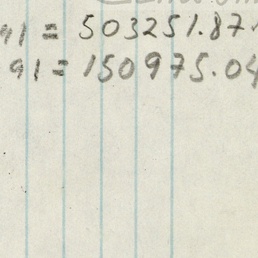 91 = 503251.87
91 = 150975.04